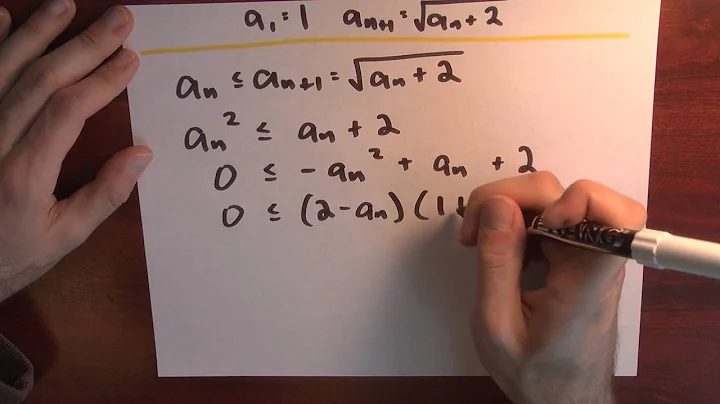 a₁ = 1 aₙ₊₁ = √(aₙ + 2)
aₙ ≤ aₙ₊₁ = √(aₙ + 2)
aₙ² ≤ aₙ + 2
0 ≤ -aₙ² + aₙ + 2
0 ≤ (2 - aₙ)(1 +